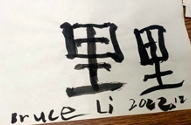 里里
Bruce Li 2022.12